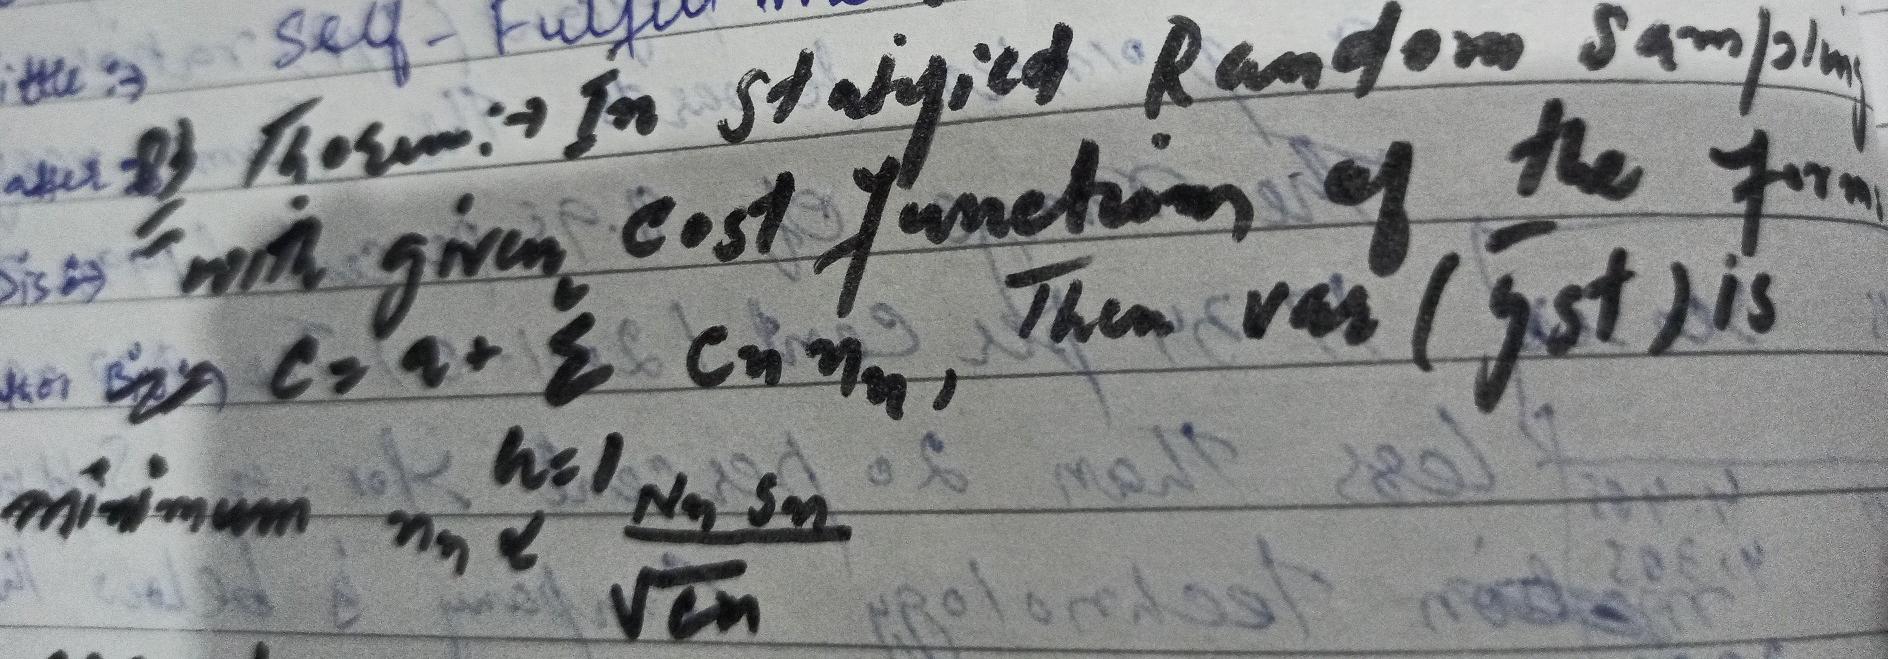 Self-Fulfil
Thorem:→ In stratified Random Sampling
with given cost function of the form
C = a + Σ Ch nh, Then var (ȳst) is
L
h=1
minimum nh ∝ Nh Sh
√Ch